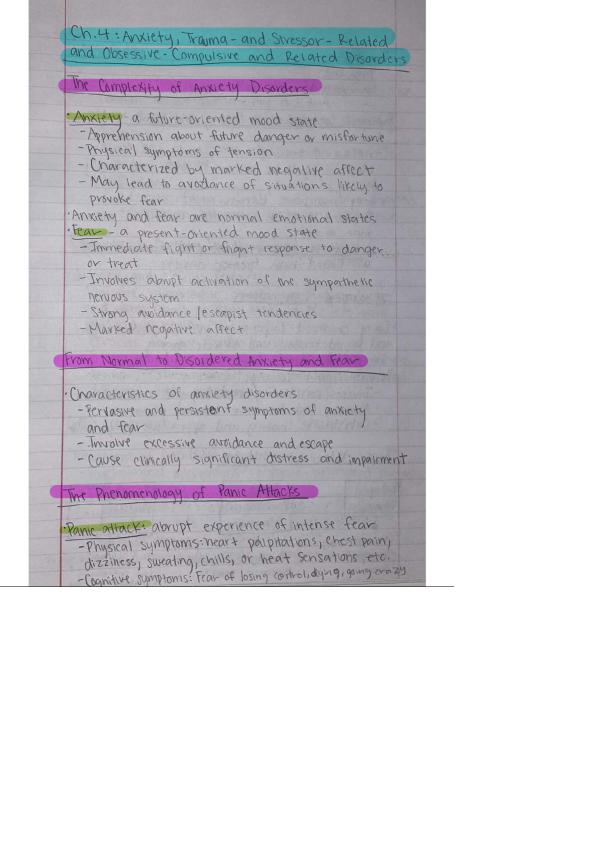 Ch.4: Anxiety, Trauma- and Stressor-Related
and Obsessive-Compulsive and Related Disorders
The Complexity of Anxiety Disorders
·Anxiety - a future-oriented mood state
- Apprehension about future danger or misfortune
- Physical symptoms of tension
- Characterized by marked negative affect
- May lead to avoidance of situations likely to
provoke fear
·Anxiety and fear are normal emotional states
·Fear - a present-oriented mood state
- Immediate fight or flight response to danger
or treat
- Involves abrupt activation of the sympathetic
nervous system
- Strong avoidance/escapist tendencies
- Marked negative affect
From Normal to Disordered Anxiety and Fear
·Characteristics of anxiety disorders
- Pervasive and persistent symptoms of anxiety
and fear
- Involve excessive avoidance and escape
- Cause clinically significant distress and impairment
The Phenomenology of Panic Attacks
·Panic attack: abrupt experience of intense fear
- Physical symptoms: heart palpitations, chest pain,
dizziness, sweating, chills, or heat sensations etc.
- Cognitive symptoms: Fear of losing control, dying, going crazy